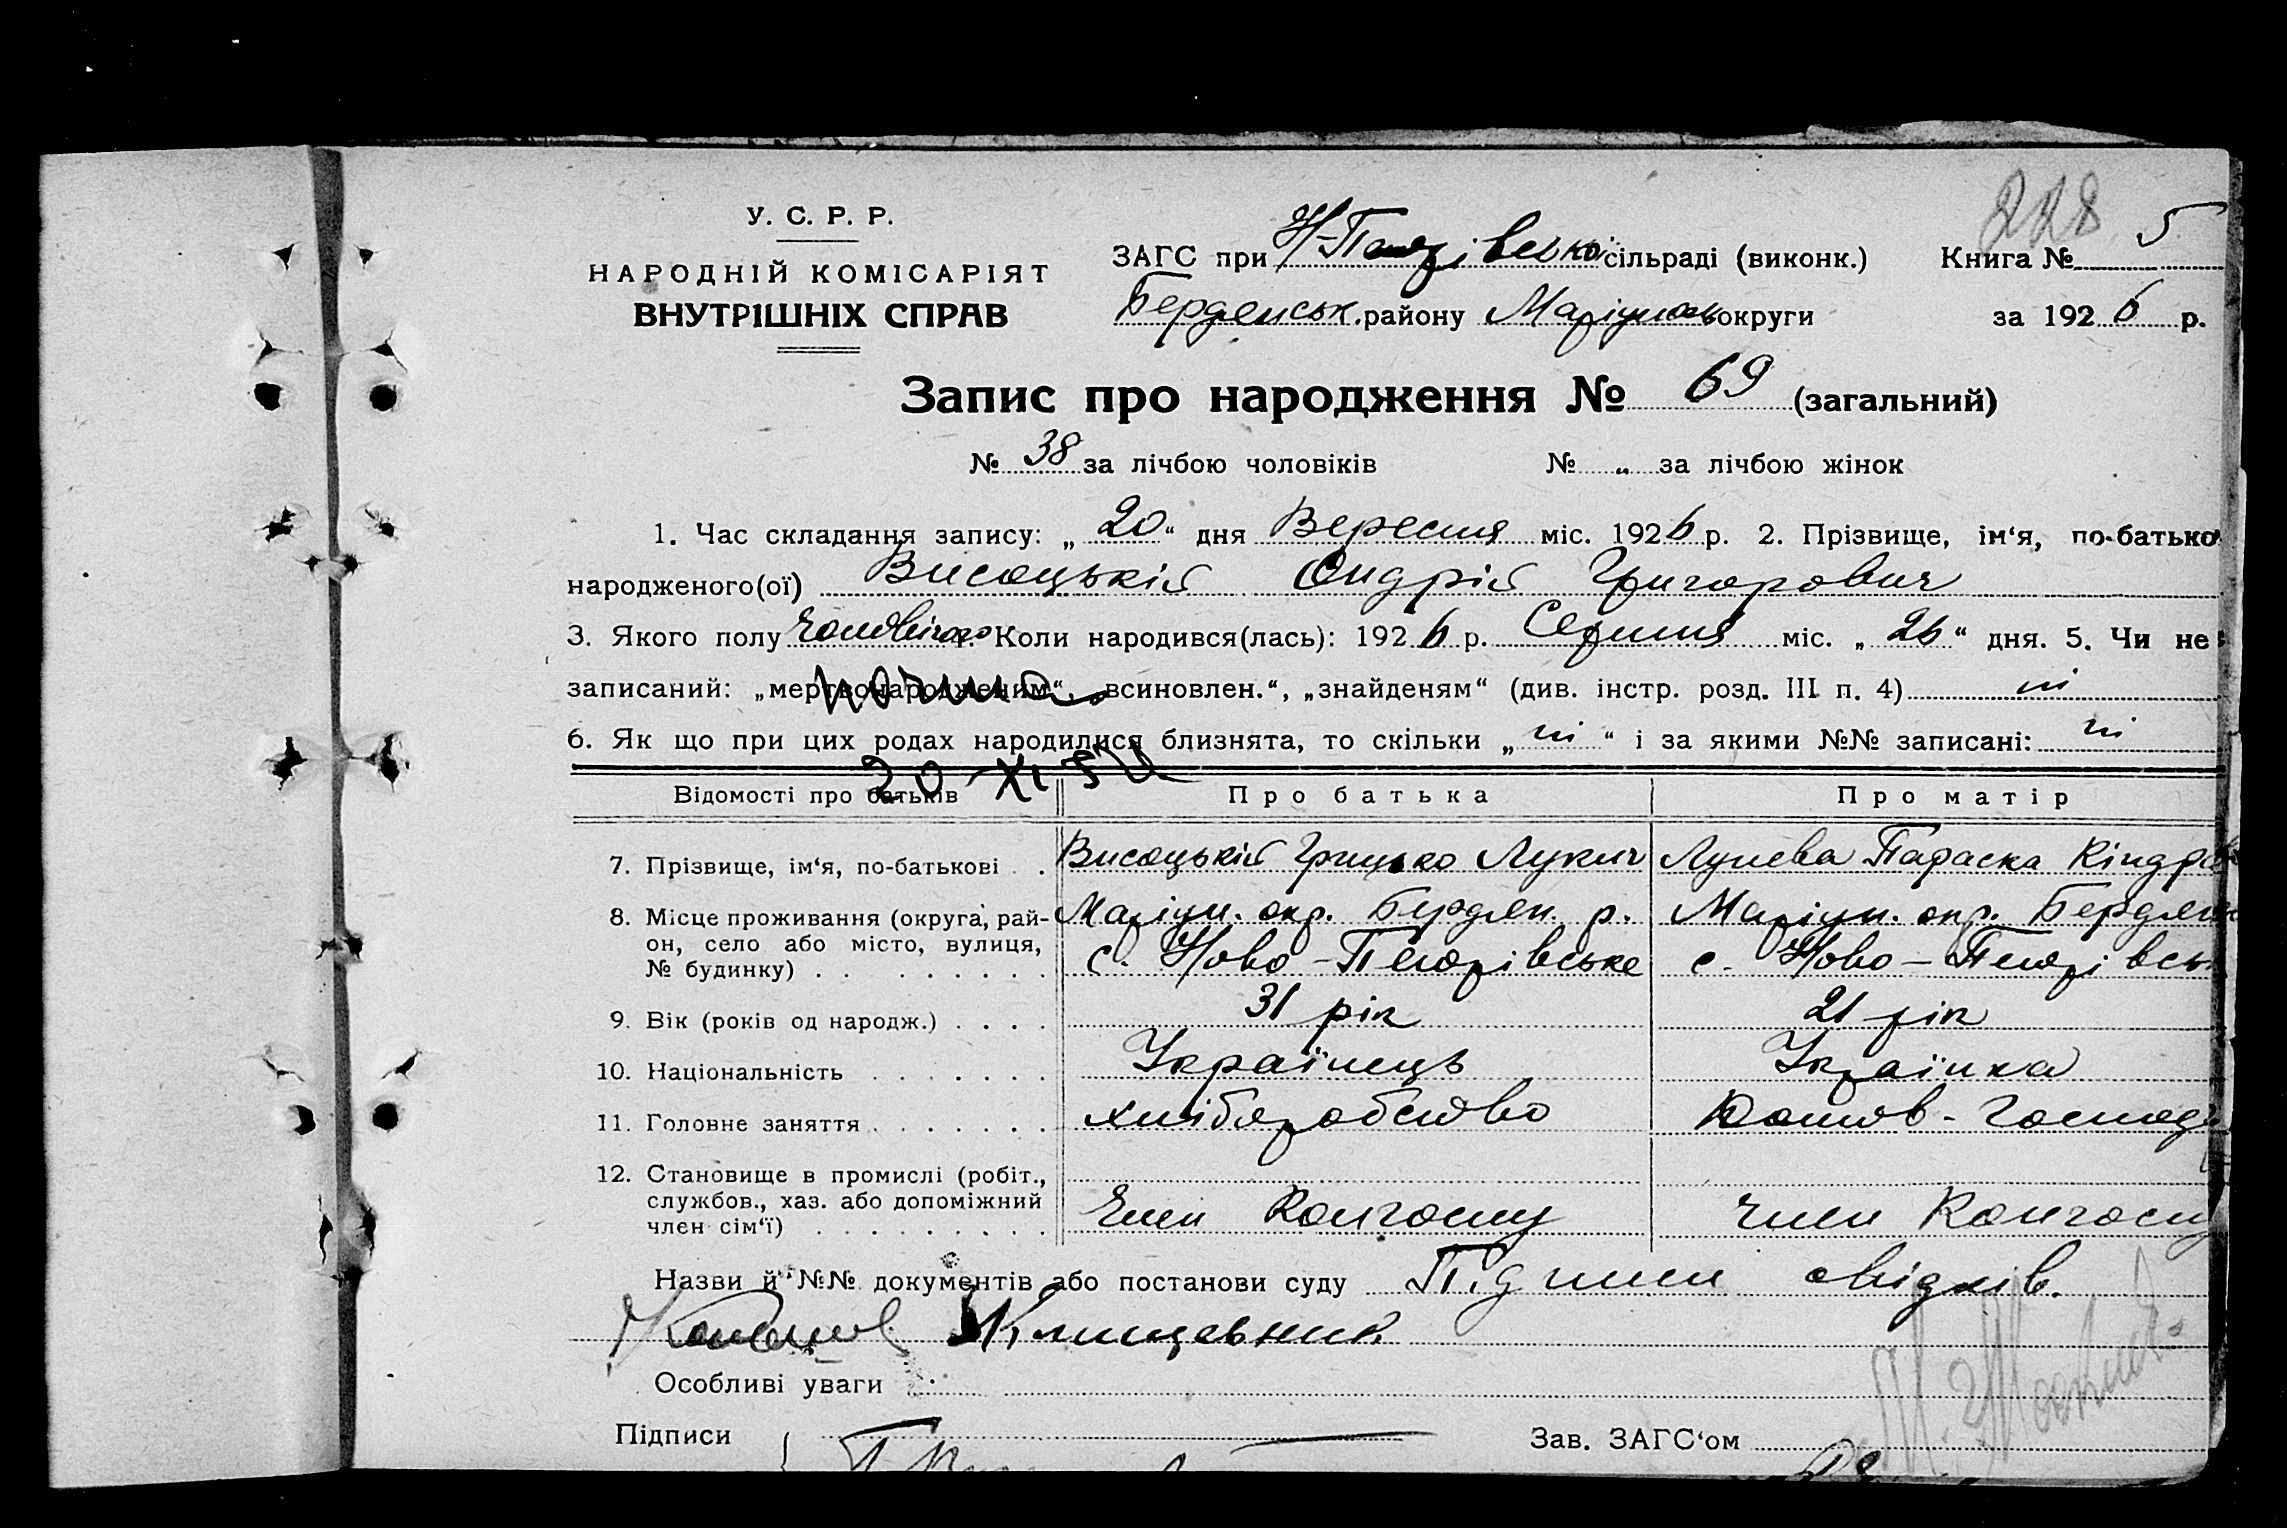 228
У. С. Р. Р.
НАРОДНІЙ КОМІСАРІЯТ
ВНУТРІШНІХ СПРАВ
ЗАГС при Н-Петрівські сільраді (виконк.) Книга № 5
Бердянськ. району Маріупольокруги за 1926 р.
Запис про народження № 69 (загальний)
№ 38 за лічбою чоловіків № „ за лічбою жінок
1. Час складання запису: „ 20 “ дня Вересня міс. 1926 р. 2. Прізвище, ім‘я, по-батькові
народженого(ої) Висоцький Ондрій Григорович
3. Якого полу Чоловічого Коли народився(лась): 1926 р. Серпня міс. „ 26 “ дня. 5. Чи не
записаний: „мертвонародженим“, „всиновлен.“, „знайденям“ (див. інстр. розд. III п. 4) ні
6. Як що при цих родах народилися близнята, то скільки „ ні “ і за якими №№ записані: ні
20 XI
Відомості про батьків Про батька Про матір
7. Прізвище, ім‘я, по-батькові Висоцький Грицько Лукич Лунева Параска Кіндра
8. Місце проживання (округа, рай- Маріуп. окр. Бердян. р. Маріуп. окр. Бердян
он, село або місто, вулиця, с. Ново-Петрівське с. Ново-Петрівсь
№ будинку)
9. Вік (років од народж.) 31 рік 21 рік
10. Національність Українець Українка
11. Головне заняття хліборобство Домов-Господ
12. Становище в промислі (робіт.,
службов., хаз. або допоміжний Член Колгоспу Член Колгосп
член сім‘ї)
Назви й №№ документів або постанови суду Підписи свідків.
Клищевник
Особливі уваги
Підписи Зав. ЗАГС‘ом